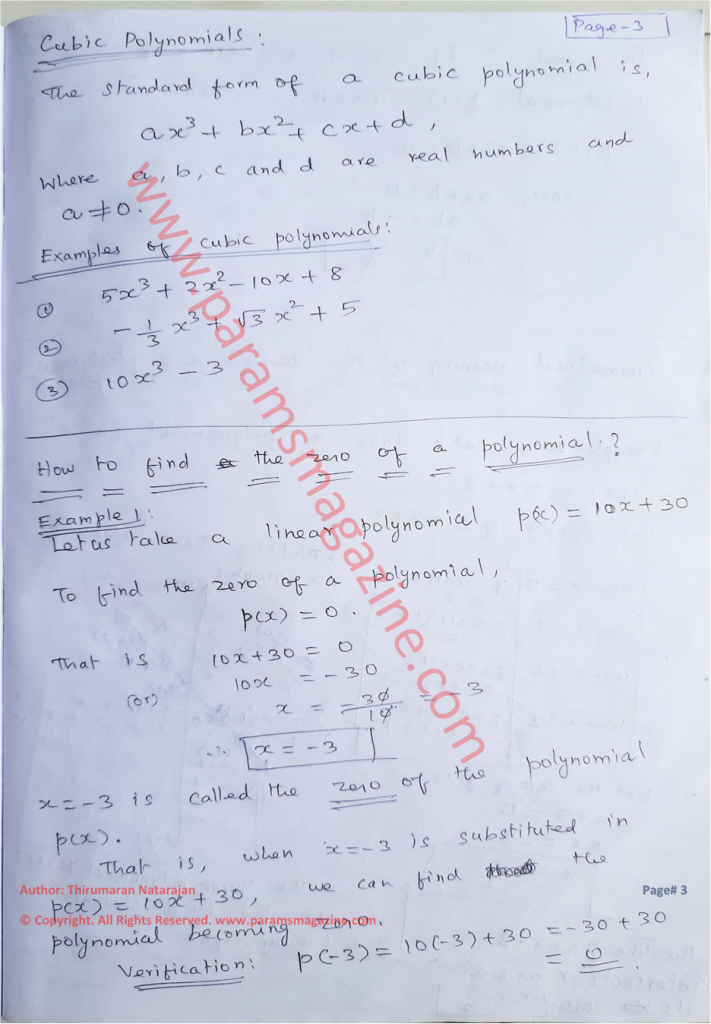 Page-3
Cubic Polynomials:
The standard form of a cubic polynomial is,
ax³ + bx² + cx + d,
where a, b, c and d are real numbers and
a ≠ 0.
Examples of cubic polynomials:
① 5x³ + 2x² - 10x + 8
② -1/3 x³ + √3 x² + 5
③ 10x³ - 3
How to find the zero of a polynomial?
Example 1:
Let us take a linear polynomial p(x) = 10x + 30
To find the zero of a polynomial,
p(x) = 0.
That is 10x + 30 = 0
(or) 10x = -30
x = -30/10 = -3
∴ x = -3
x = -3 is called the zero of the polynomial
p(x).
That is, when x = -3 is substituted in
p(x) = 10x + 30, we can find the
polynomial becoming zero.
Verification: p(-3) = 10(-3) + 30 = -30 + 30
= 0.
www.paramsmagazine.com
Author: Thirumaran Natarajan
Page# 3
© Copyright. All Rights Reserved. www.paramsmagazine.com